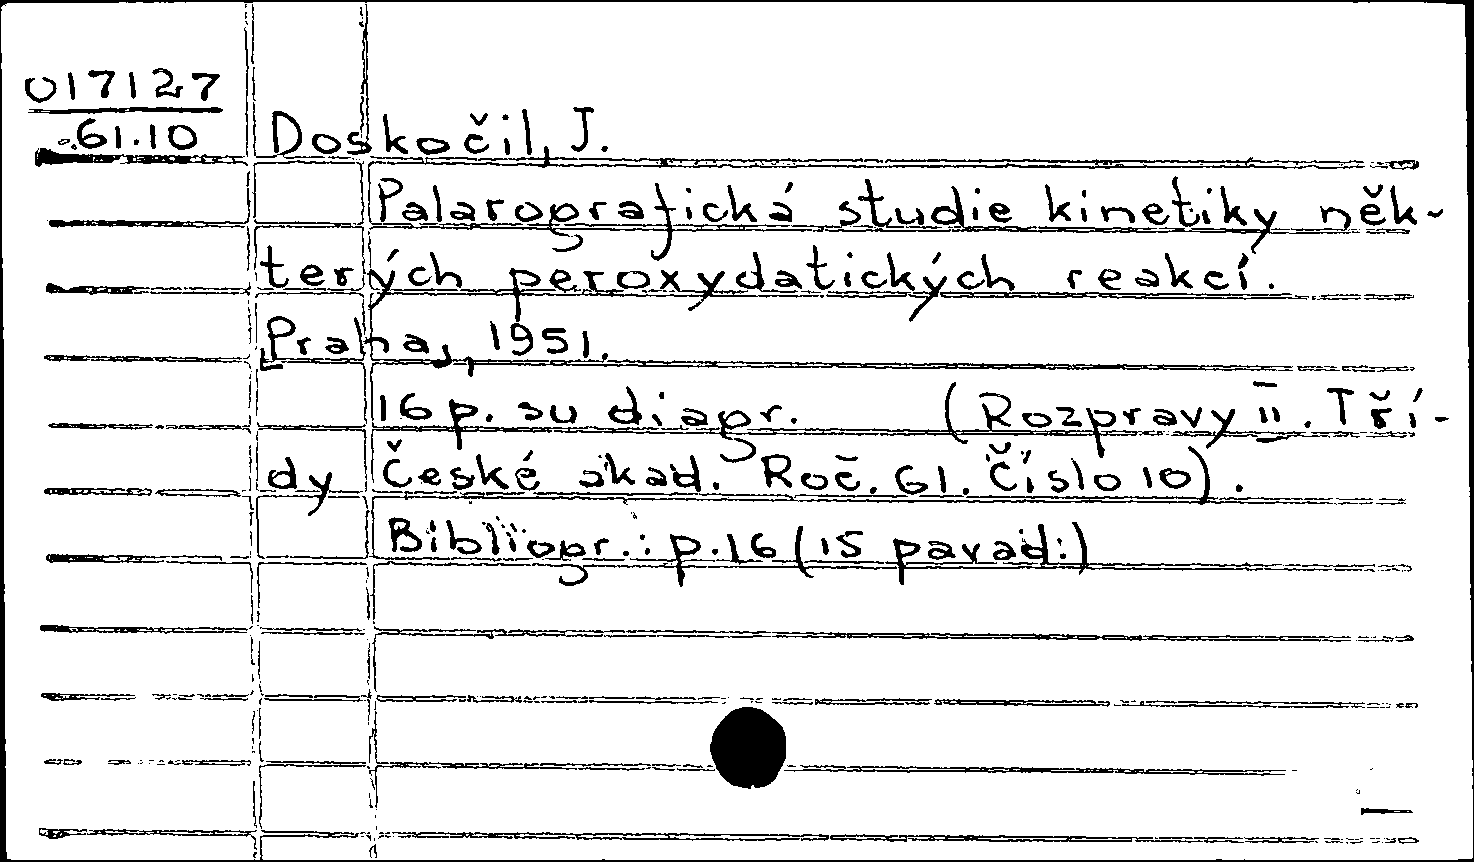 017127
61.10
Doskočil, J.
Palarografická studie kinetiky něk-
terých peroxydatických reakcí.
[Praha], 1951.
16 p. su diagr. (Rozpravy II. Tří-
dy České akad. Roč. 61. Číslo 10).
Bibliogr.: p. 16 (15 pavad.)